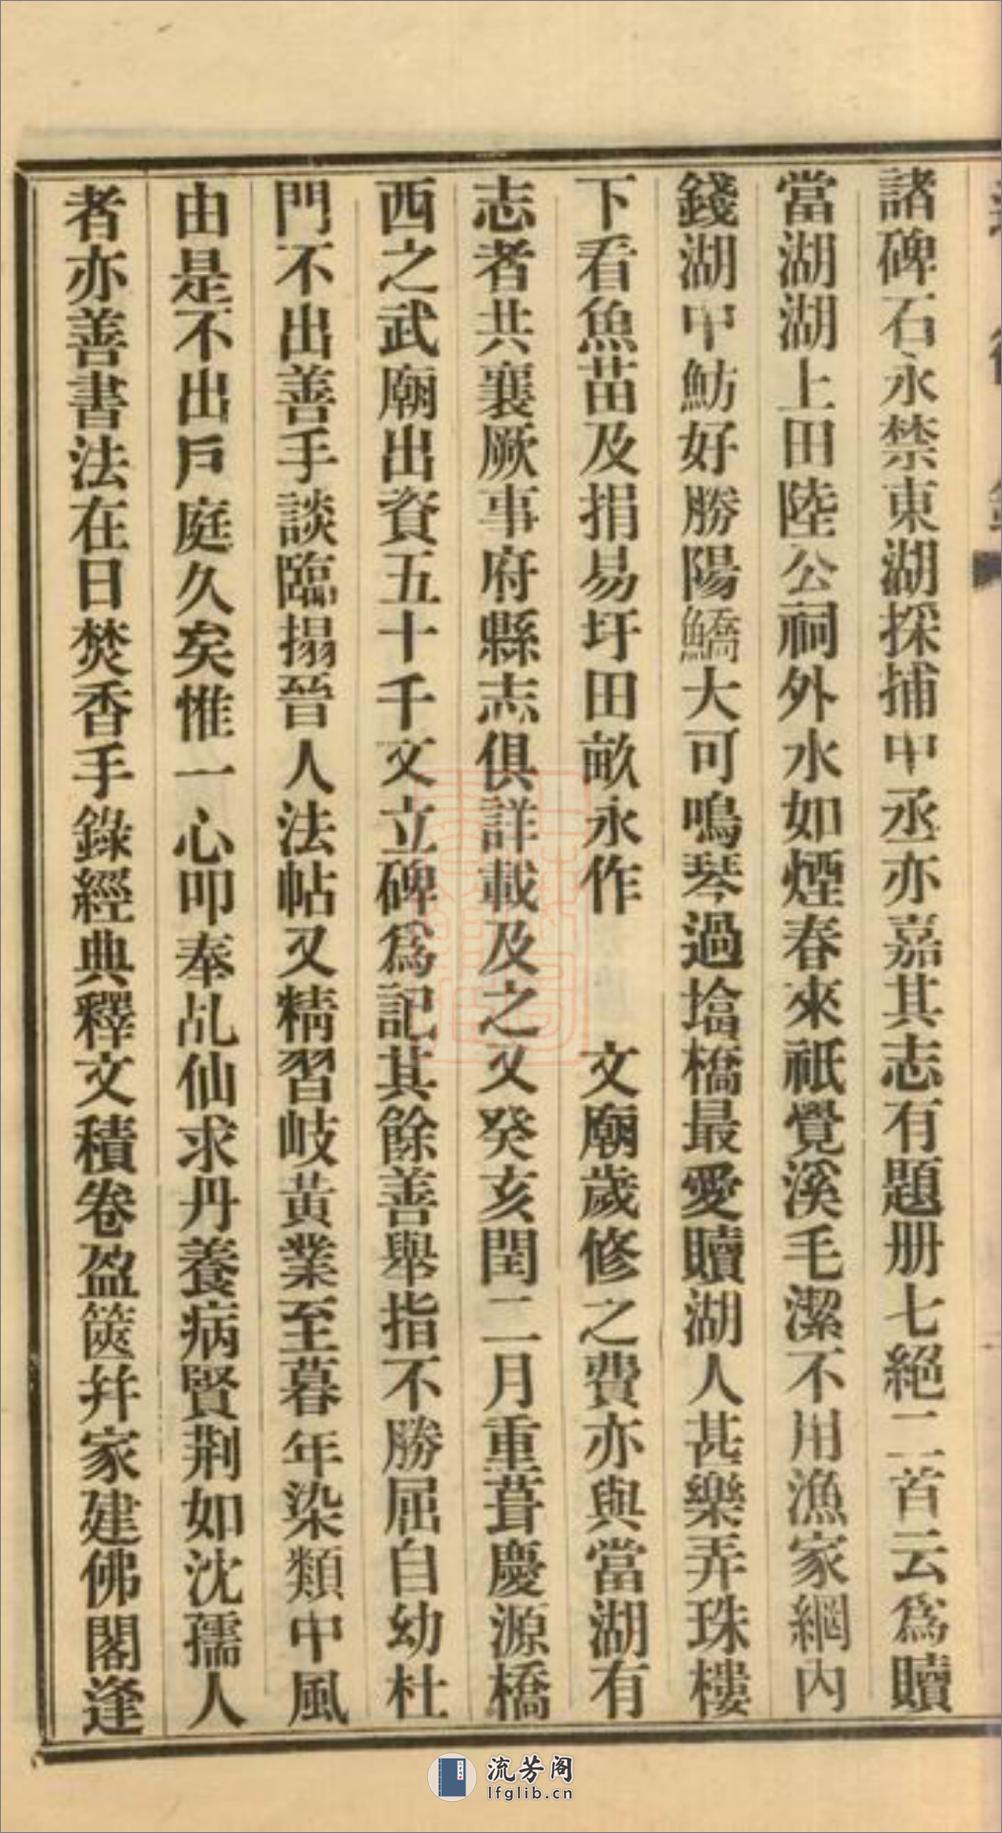 諸碑石永禁東湖採捕中丞亦嘉其志有題册七絕二首云爲贖
當湖湖上田陸公祠外水如煙春來祇覺溪毛潔不用漁家網內
錢湖中魴好勝陽鱎大可鳴琴過墖橋最愛贖湖人甚樂弄珠樓
下看魚苗及捐易圩田畝永作　文廟歲修之費亦與當湖有
志者共襄厥事府縣志俱詳載及之又癸亥閏二月重葺慶源橋
西之武廟出資五十千文立碑爲記其餘善舉指不勝屈自幼杜
門不出善手談臨搨晉人法帖又精習岐黃業至暮年染類中風
由是不出戶庭久矣惟一心叩奉乩仙求丹養病賢荆如沈孺人
者亦善書法在日焚香手錄經典釋文積卷盈篋幷家建佛閣逢
流芳阁
lfglib.cn